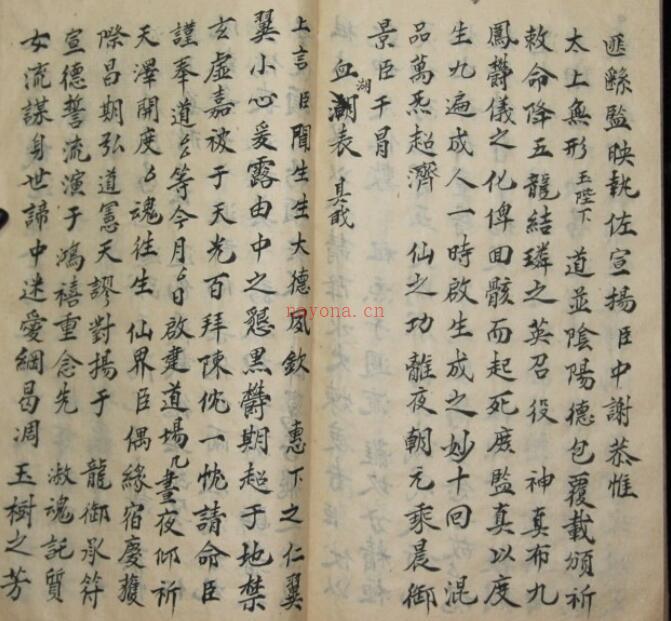 匪繇監映執佐宣揚臣中謝恭惟
太上無形玉陛下 道並陰陽德包覆載頒祈
敕命降五龍結璘之英召役 神真布九
鳳欝儀之化俾回骸而起死庻監真以度
生九遍成人一時啟生成之妙十回 混
品萬炁超濟 仙之功離夜朝元乘晨御
景臣干冒
血湖表 真戒
湖
上言臣聞生生大德夙欽 惠下之仁翼
翼小心爰露由中之懇黒欝期超于地禁
玄虛嘉被于天光百拜陳忱一忱請命臣
謹奉道 等今月 日啟建道場凡晝夜仰祈
天澤開度 魂徃生 仙界臣偶緣宿慶獲
際昌期弘道憲天謬對揚于 龍御承符
宣德誓流演于鴻禧重念先 故魂託質
女流謀身世諦中迷愛綱曷凋 玉樹之芳
nayona.cn